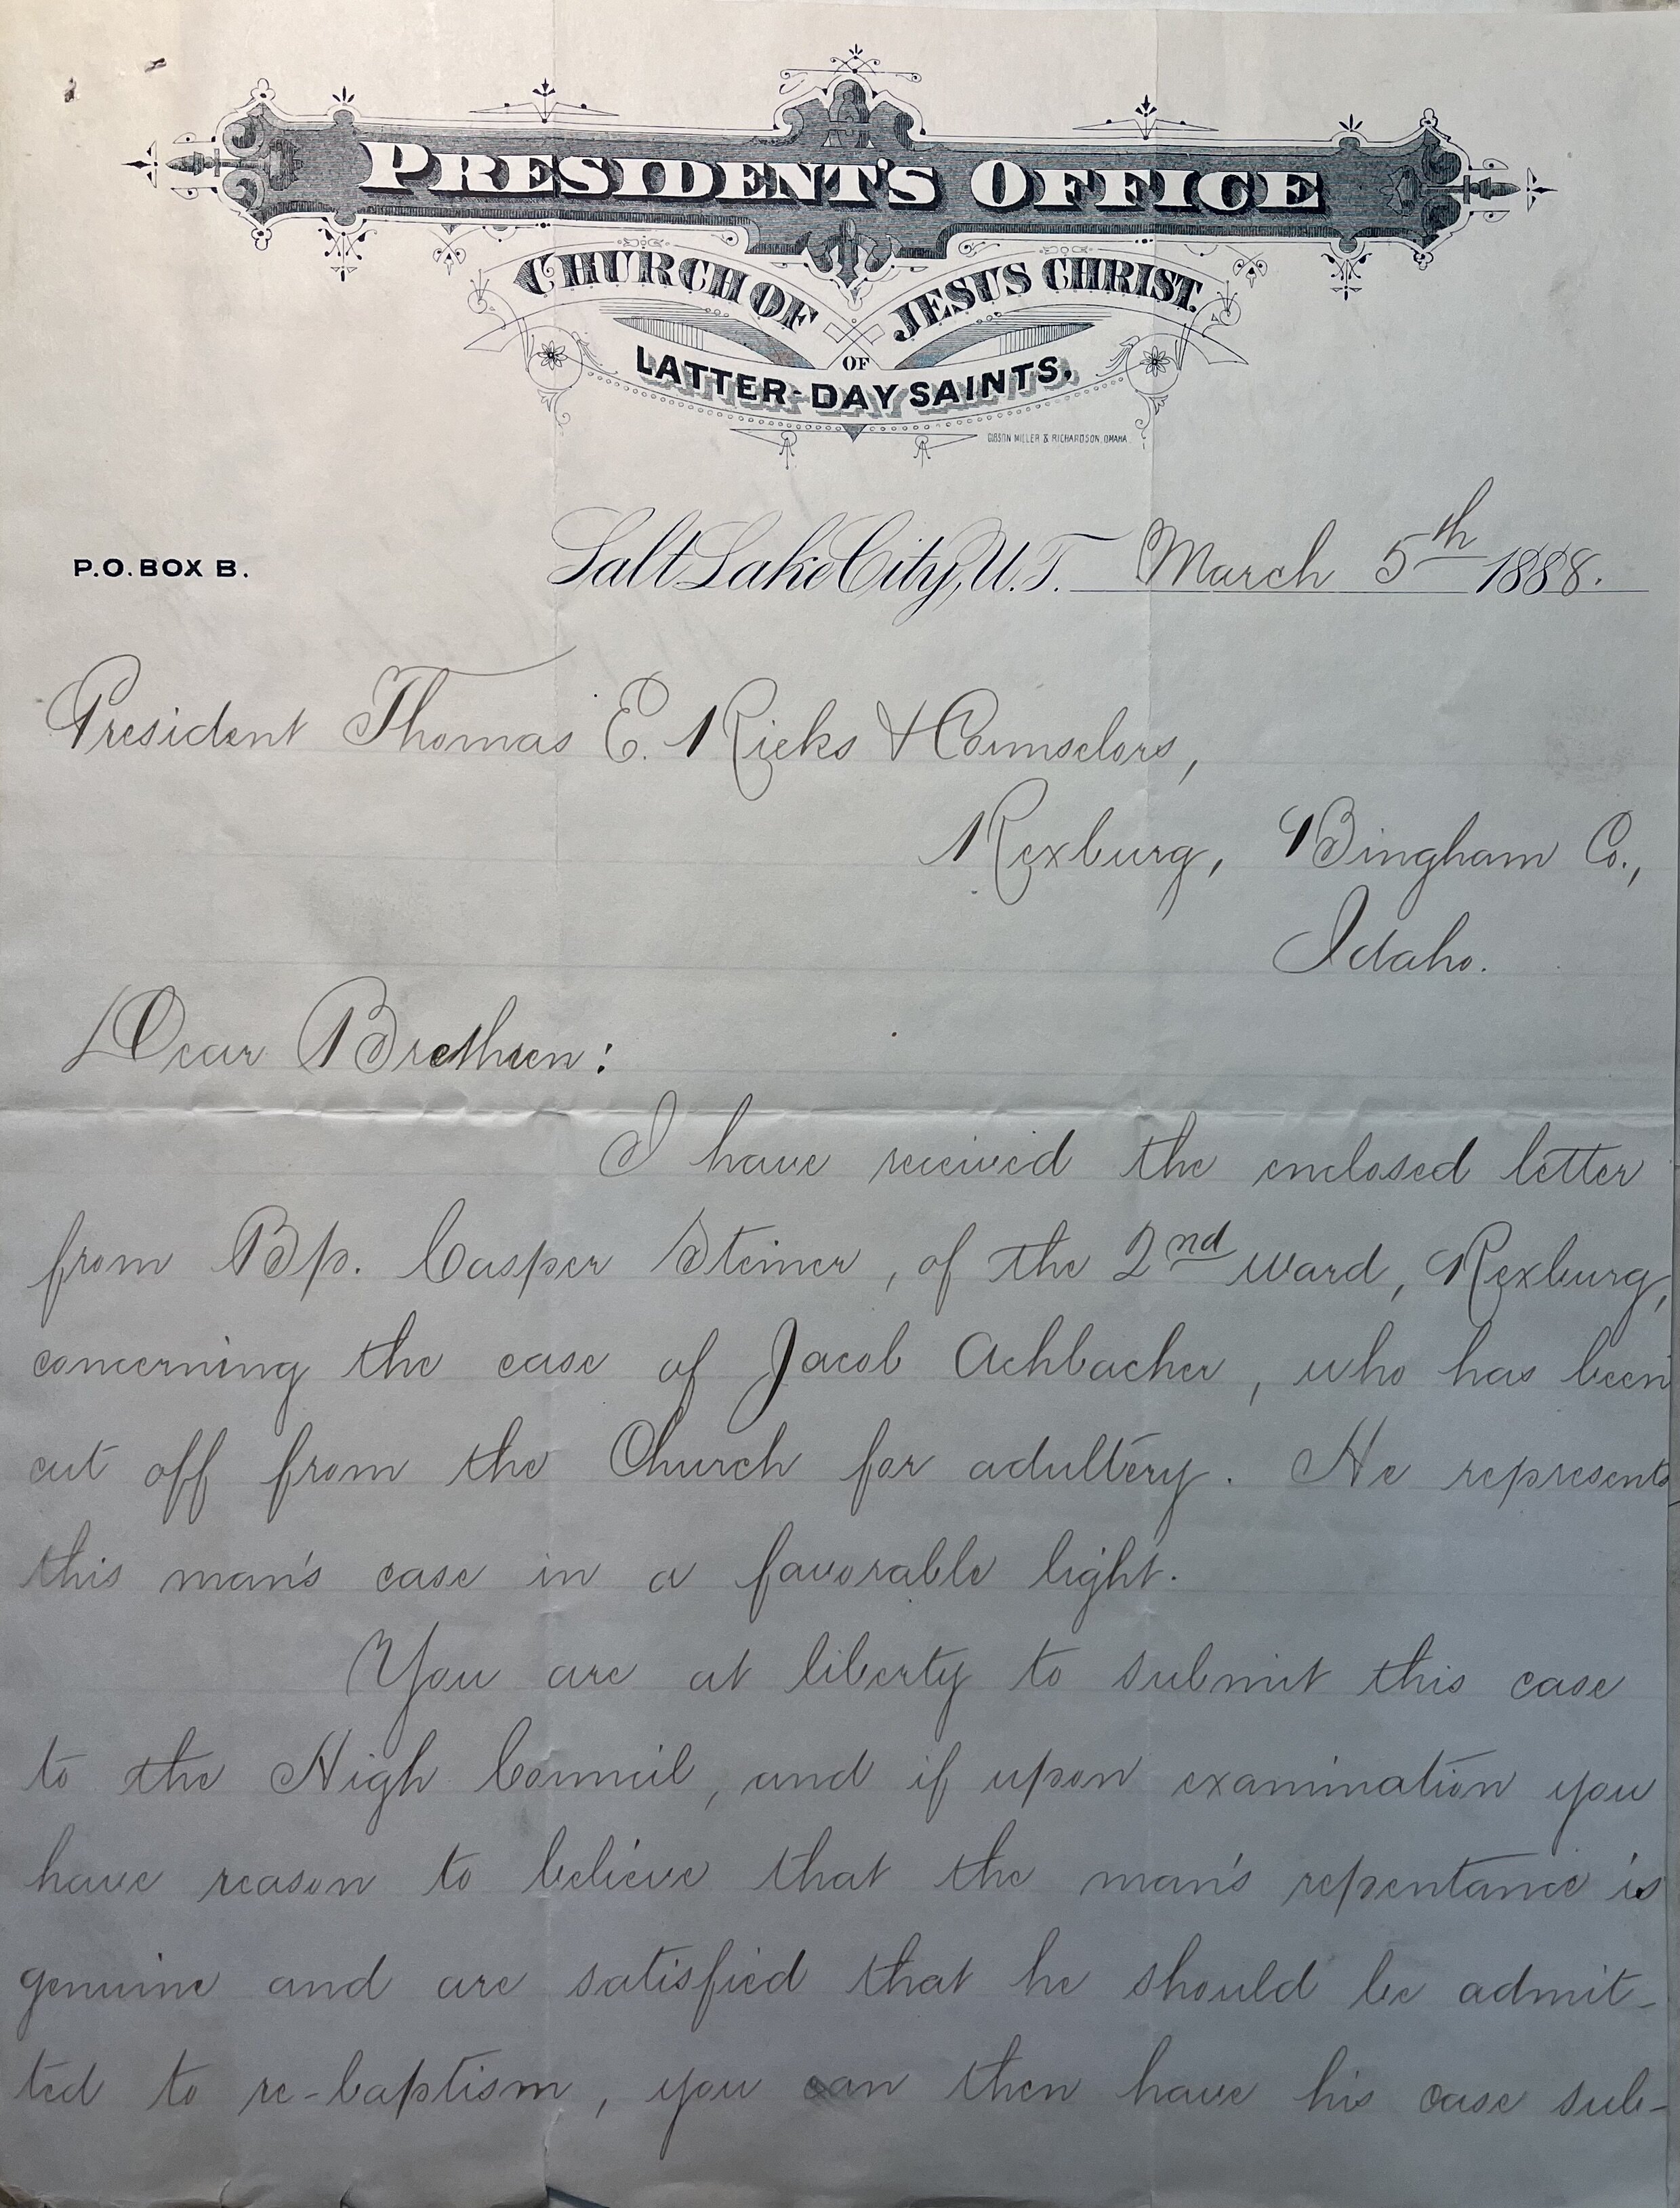 PRESIDENT'S OFFICE
CHURCH OF JESUS CHRIST
OF
LATTER-DAY SAINTS.
GIBSON MILLER & RICHARDSON, OMAHA.
P.O. BOX B.
Salt Lake City, U.T. March 5th 1888.
President Thomas E. Ricks & Counselors,
Rexburg, Bingham Co.,
Idaho.
Dear Brethren:
I have received the enclosed letter
from Bp. Casper Steiner, of the 2nd ward, Rexburg,
concerning the case of Jacob Achbacher, who has been
cut off from the Church for adultery. He represents
this man's case in a favorable light.
You are at liberty to submit this case
to the High Council, and if upon examination you
have reason to believe that the man's repentance is
genuine and are satisfied that he should be admit-
ted to re-baptism, you can then have his case sub-